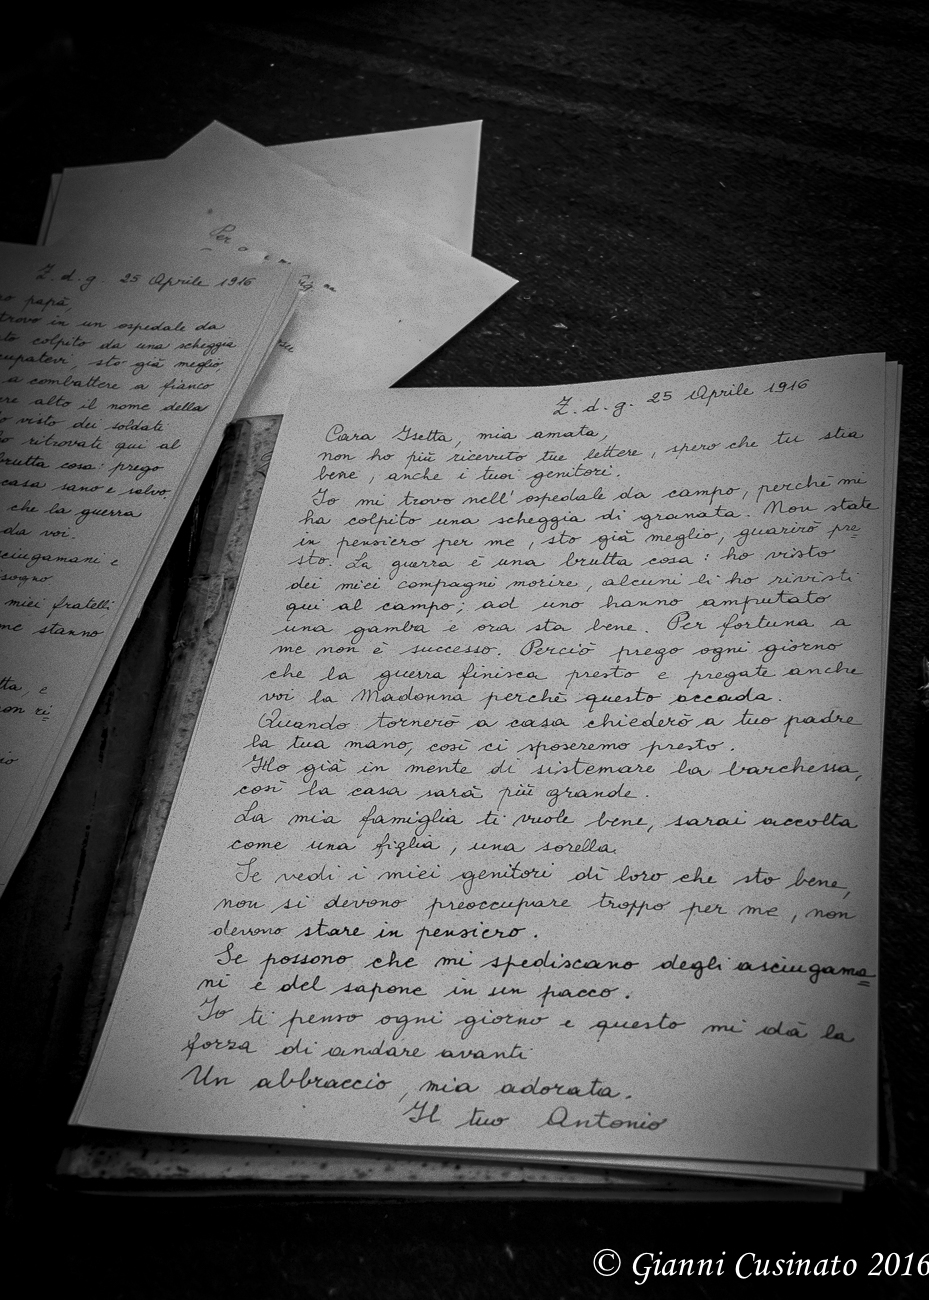 Per
Z. d. g. 25 Aprile 1916
papà,
trovo in un ospedale da
colpito da una scheggia
sto già meglio,
a combattere a fianco
alto il nome della
visto dei soldati
ritrovati qui al
brutta cosa: prego
casa sano e salvo,
che la guerra
da voi.
sciugamani e
sogno
miei fratelli,
me stanno
tta, e
non ri
Z. d. g. 25 Aprile 1916
Cara Isetta, mia amata,
non ho più ricevuto tue lettere, spero che tu stia
bene, anche i tuoi genitori.
Io mi trovo nell'ospedale da campo, perchè mi
ha colpito una scheggia di granata. Non state
in pensiero per me, sto già meglio, guarirò pre
sto. La guerra è una brutta cosa: ho visto
dei miei compagni morire, alcuni li ho rivisti
qui al campo; ad uno hanno amputato
una gamba e ora sta bene. Per fortuna a
me non è successo. Perciò prego ogni giorno
che la guerra finisca presto e pregate anche
voi la Madonna perchè questo accada.
Quando tornerò a casa chiederò a tuo padre
la tua mano, così ci sposeremo presto.
Ho già in mente di sistemare la barchessa,
così la casa sarà più grande.
La mia famiglia ti vuole bene, sarai accolta
come una figlia, una sorella.
Se vedi i miei genitori dì loro che sto bene,
non si devono preoccupare troppo per me, non
devono stare in pensiero.
Se possono che mi spediscano degli asciugama
ni e del sapone in un pacco.
Io ti penso ogni giorno e questo mi dà la
forza di andare avanti
Un abbraccio, mia adorata.
Il tuo Antonio
© Gianni Cusinato 2016